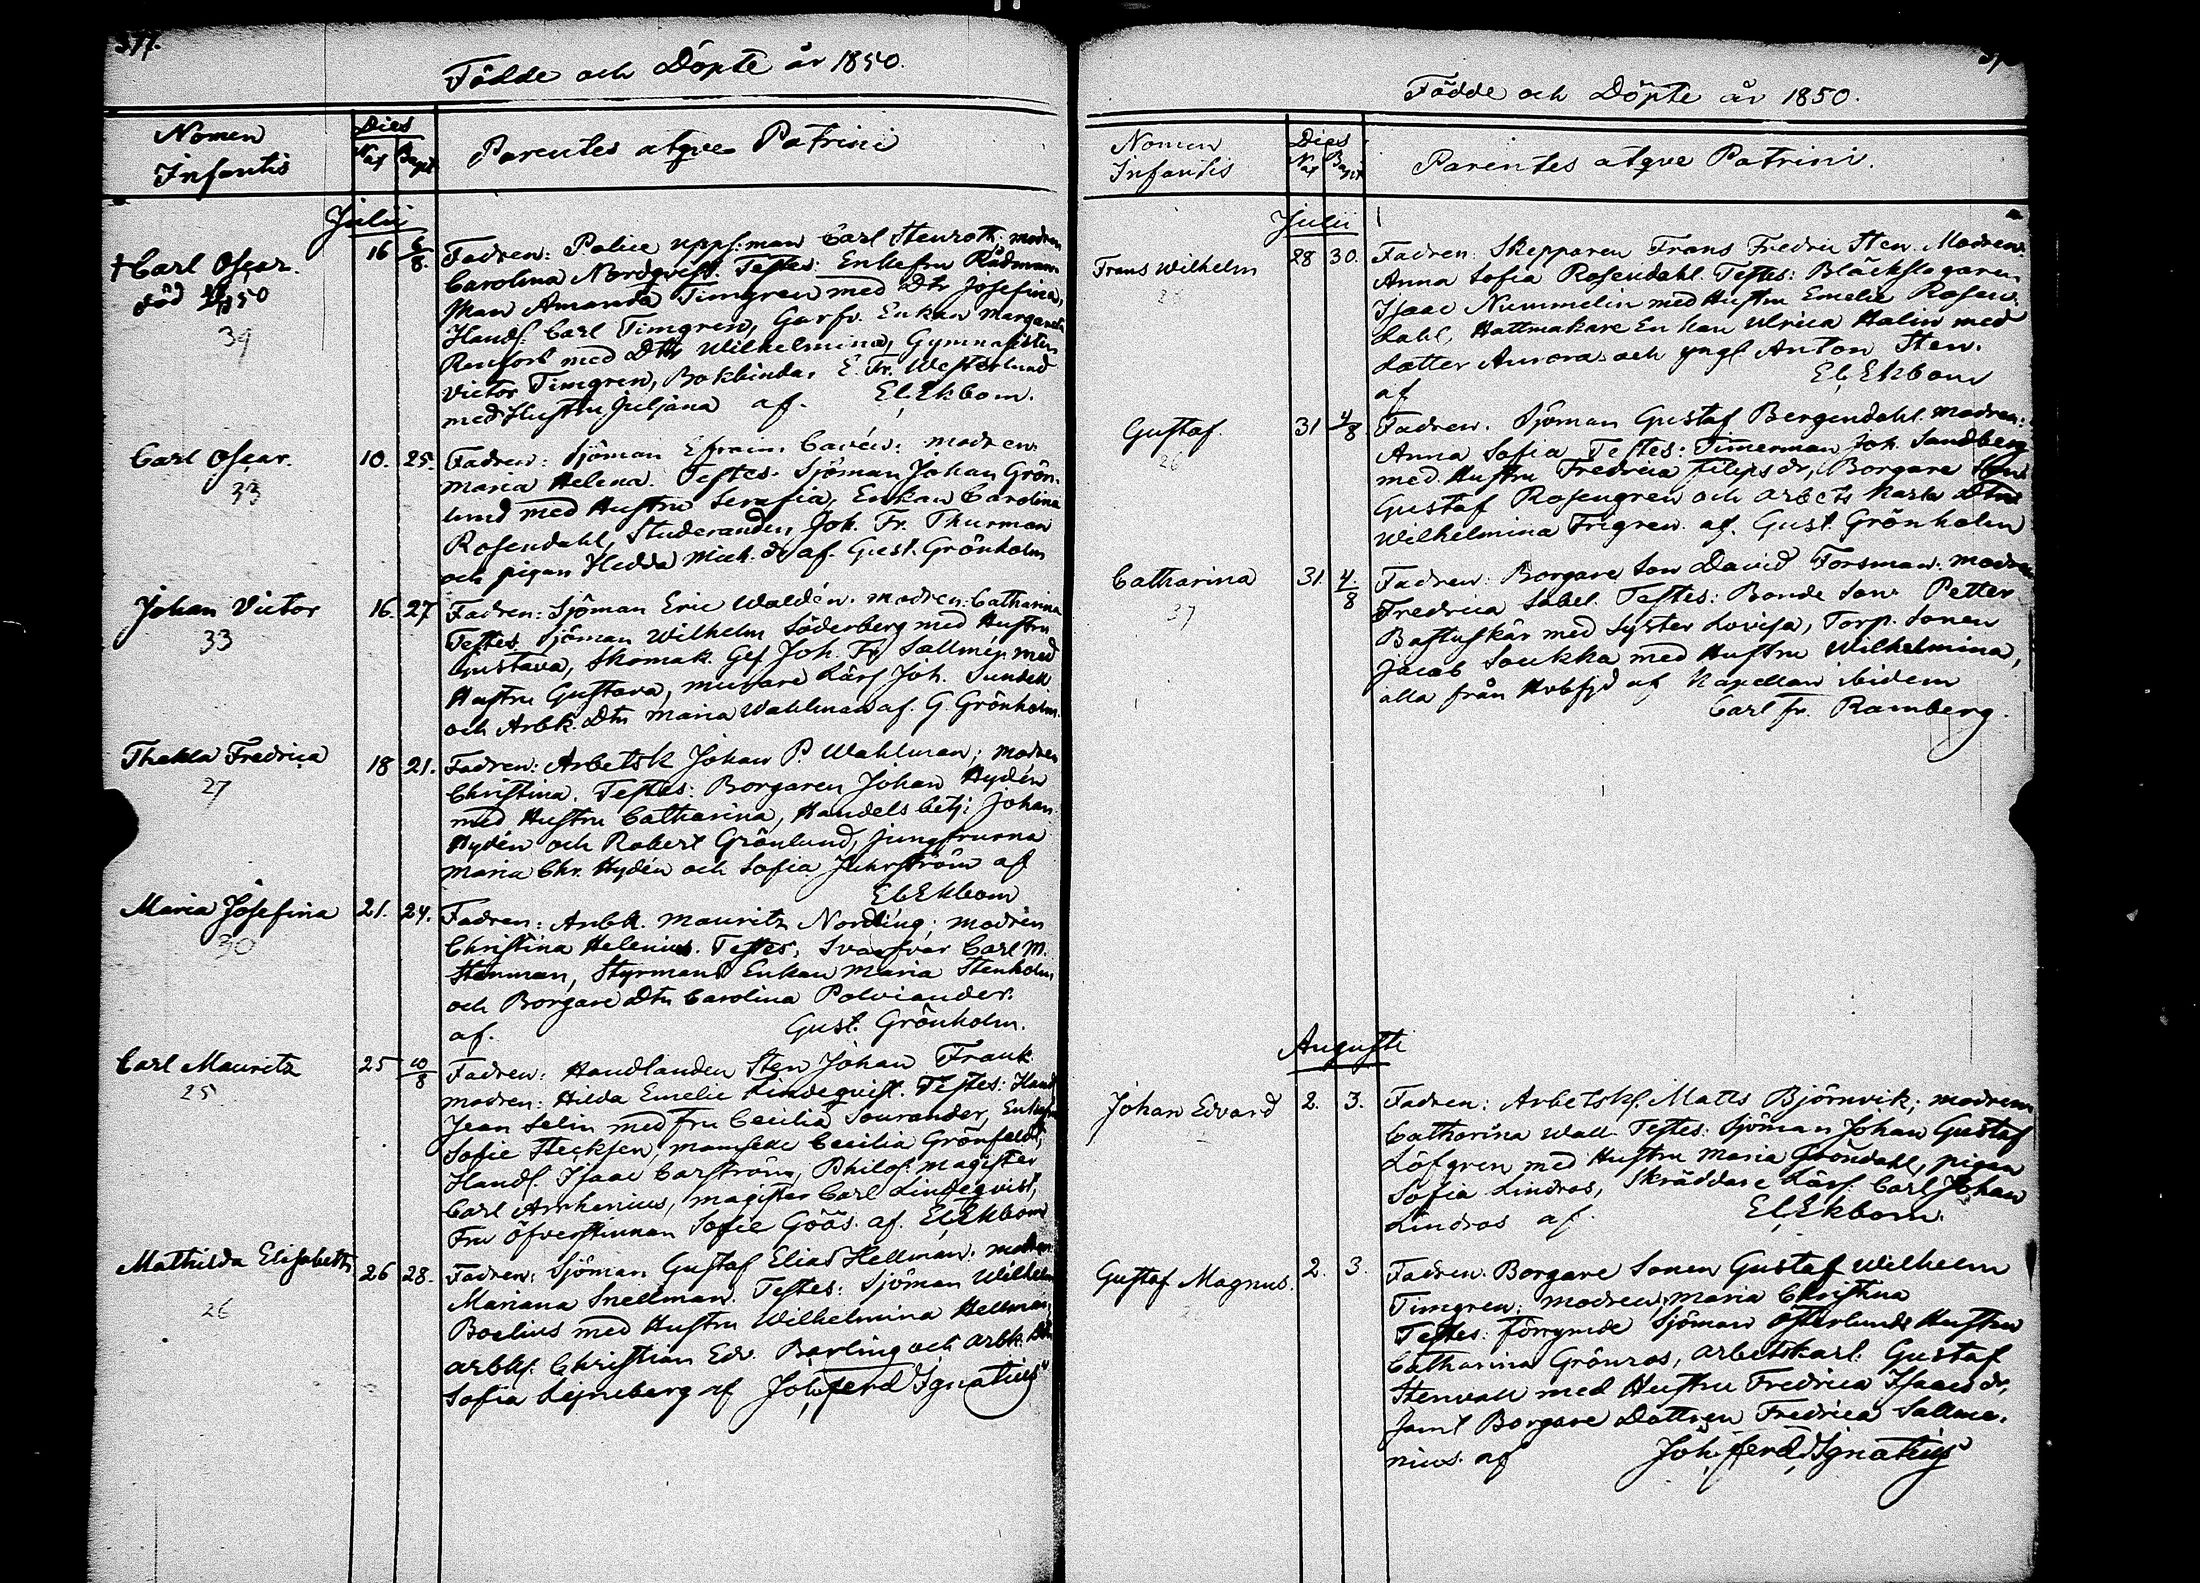 377.
Födde och Döpte år 1850.
Nomen Infantis
Dies
Nas Bapt
Parentes atqve Patrini
Julii
†Carl Oscar.
död 50
39
16 6/8.
Fadren: Police upps:man Carl Stenroth; modren
Carolina Nordqvist. Testes: Enkefru Rådman
Amanda Timgren med Dtr Josefina,
Handl: Carl Timgren, Garfv. Enkan Margareta
Renfors med Dttr Wilhelmina, Gymnasisten
Victor Timgren, Bokbindar. E. Fr. Westerlund
med Hustru Juljana af. El. Ekbom.
Carl Oscar.
33
10. 25.
Fadren: Sjöman Efraim Cavén: modren
Maria Helena. Testes. Sjöman Johan Grön-
lund med Hustru Serafia, Enkan Carolina
Rosendahl, Studeranden Joh. Fr. Thurman
och pigan Hedda Mich. dr af. Gust. Grönholm
Johan Victor
33
16. 27
Fadren: Sjöman Eric Waldén. modren: Catharina
Testes Sjöman Wilhelm Söderberg med Hustru
Gustava, Skomak. Ges Joh. Fr. Sallmén med
Hustru Gustava, murare Lärl Joh. Sundell
och Arbk. Dtn Maria Wahlman af. G. Grönholm.
Thekla Fredrica
27
18 21.
Fadren: Arbetsk Johan P. Wahlman; modren
Christina. Testes: Borgaren Johan Hydén
med Hustru Catharina, Handels betj: Johan
Hydén och Robert Grönlund, jungfrurna
Maria Chr. Hydén och Sofia Fuhrström af
El. Ekbom
Maria Josefina
30
21. 24.
Fadren: Arbk. Mauritz Nordling; modren
Christina Helenius. Testes; Svarfvar Carl M.
Stenman, Styrmans Enkan Maria Stenholm
och Borgare Dtn Carolina Polviander.
af. Gust. Grönholm.
Carl Mauritz
25
25 10/8
Fadren: Handlanden Sten Johan Frank
modren: Hilda Emelie Lindeqvist. Testes: Handl
Jean Selin med fru Cecilia Sourander, Enkefru
Sofie Stecksen, mamsell Cecilia Grönfeldt,
Handl. Isaac Carström, Philos: magister
Carl Arrhenius, magister Carl Lindeqvist,
Fru Öfverstinnan Sofie Göös. af. El. Ekbom
Mathilda Elisabeth
26
26 28.
Fadren: Sjöman Gustaf Elias Hellman. modren
Mariana Snellman. Testes: Sjöman Wilhelm
Boelius med Hustru Wilhelmina Hellman,
arbk. Christian Edv. Barling och arbk. Dtn
Sofia Lejneberg af Joh. ferd Ignatius
Födde och Döpte år 1850.
Nomen Infantis
Dies
Nas Bapt
Parentes atqve Patrini.
Julii
Frans Wilhelm
28 30.
Fadren: Skepparen Frans Fredric Sten. Modren:
Anna Sofia Rosendahl. Testes: Bläckslagaren
Isaac Nummelin med Hustru Emelie Rosen-
dahl, Hattmakare Enkan Ulrica Halin med
Dotter Aurora och yngl Anton Sten.
af El. Ekbom
Gustaf.
26
31 4/8
Fadren: Sjöman Gustaf Bergendahl. modren:
Anna Sofia Testes: Timerman Joh. Sandberg
med Hustru Fredrica Filips dr, Borgare Son
Gustaf Rosengren och arbets karls Dtn
Wilhelmina Frigren. af. Gust. Grönholm
Catharina
37
31. 4./8
Fadren: Borgare Son David Forsman. modren
Fredrica Sabel. Testes: Bonde Son Petter
Bastuskär med Syster Lovisa, Torp. Sonen
Jacob Soukka med Hustru Wilhelmina,
alla från Hvbfjd af Kapellan ibidem
Carl Fr. Ramberg.
Augusti
Johan Edvard
2. 3.
Fadren: Arbetsk. Matts Björnvik; modren
Catharina Wall. Testes: Sjöman Johan Gustaf
Löfgren med Hustru Maria Gröndahl, pigan
Sofia Lindros, Skräddare Lärl: Carl Johan
Lindros af. El. Ekbom.
Gustaf Magnus.
2. 3.
Fadren: Borgare Sonen Gustaf Wilhelm
Timgren; modren; Maria Christina
Testes: förrymde Sjöman Österlunds Hustru
Catharina Grönros, arbetskarl: Gustaf
Stenvall med Hustru Fredrica Isaacs dr,
Samt Borgare Dottren Fredrica Sallme-
nius. af Joh. ferd Ignatius